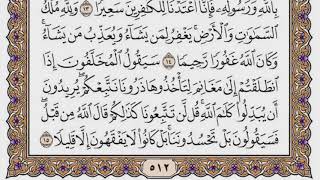 بِٱللَّهِ وَرَسُولِهِۦ فَإِنَّآ أَعْتَدْنَا لِلْكَـٰفِرِينَ سَعِيرًا ١٣ وَلِلَّهِ مُلْكُ
ٱلسَّمَـٰوَٰتِ وَٱلْأَرْضِ يَغْفِرُ لِمَن يَشَآءُ وَيُعَذِّبُ مَن يَشَآءُ
وَكَانَ ٱللَّهُ غَفُورًا رَّحِيمًا ١٤ سَيَقُولُ ٱلْمُخَلَّفُونَ إِذَا
ٱنطَلَقْتُمْ إِلَىٰ مَغَانِمَ لِتَأْخُذُوهَا ذَرُونَا نَتَّبِعْكُمْ يُرِيدُونَ
أَن يُبَدِّلُوا۟ كَلَـٰمَ ٱللَّهِ قُل لَّن تَتَّبِعُونَا كَذَٰلِكُمْ قَالَ ٱللَّهُ مِن قَبْلُ
فَسَيَقُولُونَ بَلْ تَحْسُدُونَنَا بَلْ كَانُوا۟ لَا يَفْقَهُونَ إِلَّا قَلِيلًا ١٥
٥١٢